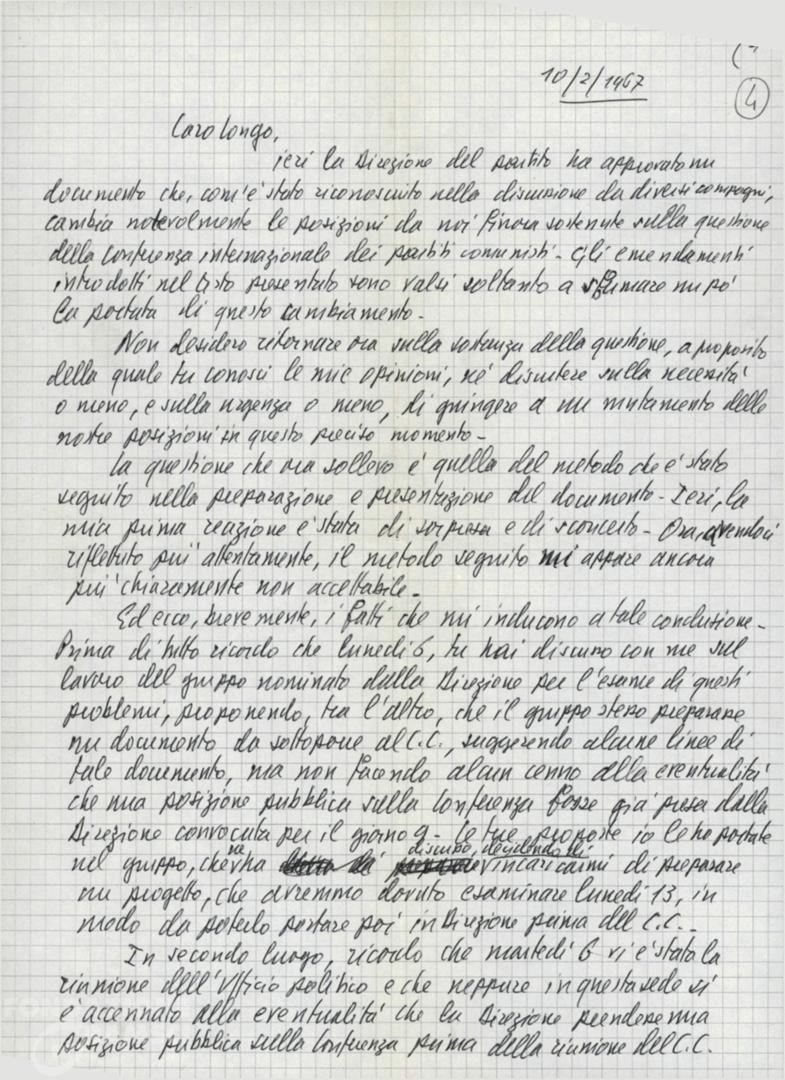 10/2/1967
4
Caro Longo,
ieri la Direzione del partito ha approvato un
documento che, com'è stato riconosciuto nella discussione da diversi compagni,
cambia notevolmente le posizioni da noi finora sostenute sulla questione
della Conferenza internazionale dei partiti comunisti - Gli emendamenti
introdotti nel testo presentato sono valsi soltanto a sfumare un po'
la portata di questo cambiamento -
Non desidero ritornare ora sulla sostanza della questione, a proposito
della quale tu conosci le mie opinioni, né discutere sulla necessità
o meno, e sulla urgenza o meno, di giungere a un mutamento delle
nostre posizioni in questo preciso momento -
La questione che ora sollevo è quella del metodo che è stato
seguito nella preparazione e presentazione del documento - Ieri, la
mia prima reazione è stata di sorpresa e di sconcerto - Ora, avendoci
riflettuto più attentamente, il metodo seguito mi appare ancora
più chiaramente non accettabile -
Ed ecco, brevemente, i fatti che mi inducono a tale conclusione -
Prima di tutto ricordo che lunedì 6, tu hai discusso con me sul
lavoro del gruppo nominato dalla Direzione per l'esame di questi
problemi, proponendo, tra l'altro, che il gruppo stesso preparasse
un documento da sottoporre al C.C., suggerendo alcune linee di
tale documento, ma non facendo alcun cenno alla eventualità
che una posizione pubblica sulla Conferenza fosse già presa dalla
Direzione convocata per il giorno 9 - Le tue proposte io le ho portate
nel gruppo, che ne ha discusso, decidendo di incaricarmi di preparare
un progetto, che avremmo dovuto esaminare lunedì 13, in
modo da poterlo portare poi in Direzione prima del C.C. -
In secondo luogo, ricordo che martedì 6 vi è stata la
riunione dell'Ufficio politico e che neppure in questa sede si
è accennato alla eventualità che la Direzione prendesse una
posizione pubblica sulla Conferenza prima della riunione del C.C.